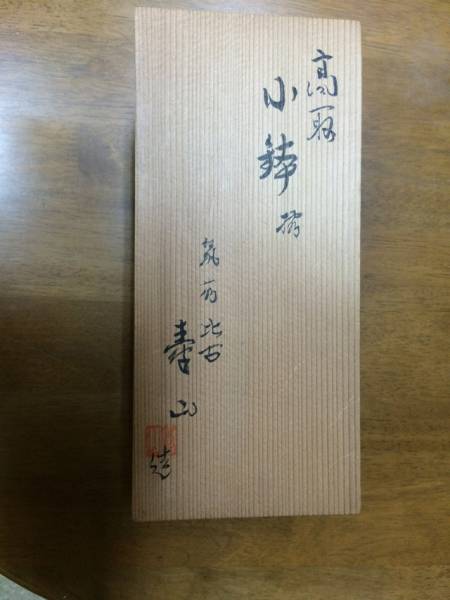 高取
小鉢 揃
筑前
寿山 造